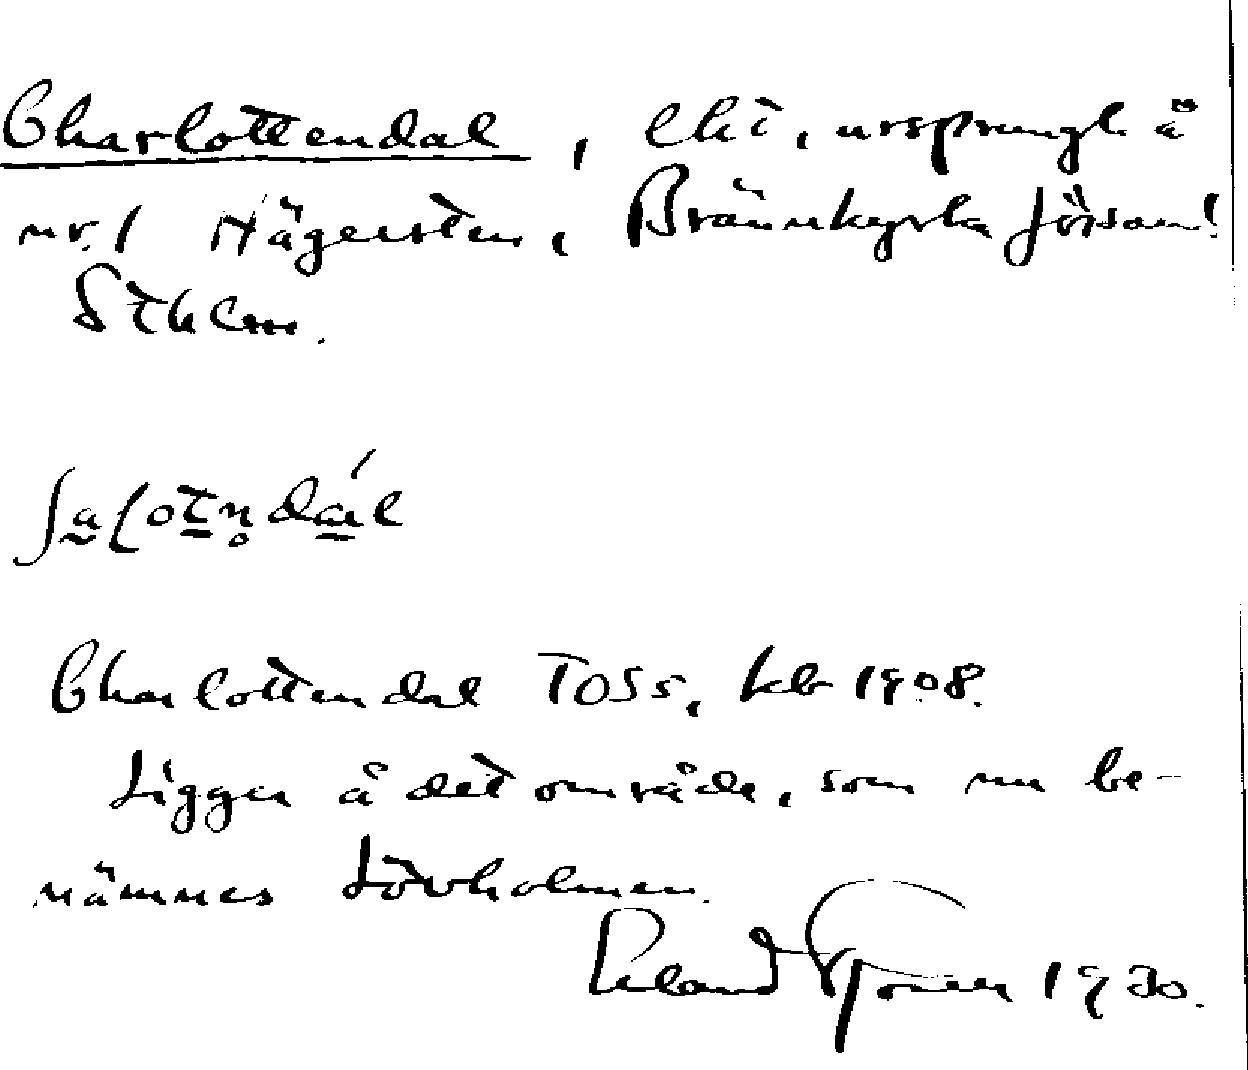 Charlottendal, lht, ursprungl. å
nr. 1 Hägersten, Brännkyrka församl.
Sthlm.
ʃa̰ɭot̠n̥da̠´l
Charlottendal TOSs, kb 1908.
Ligger å det område, som nu be-
nämnes Lövholmen.
1930.